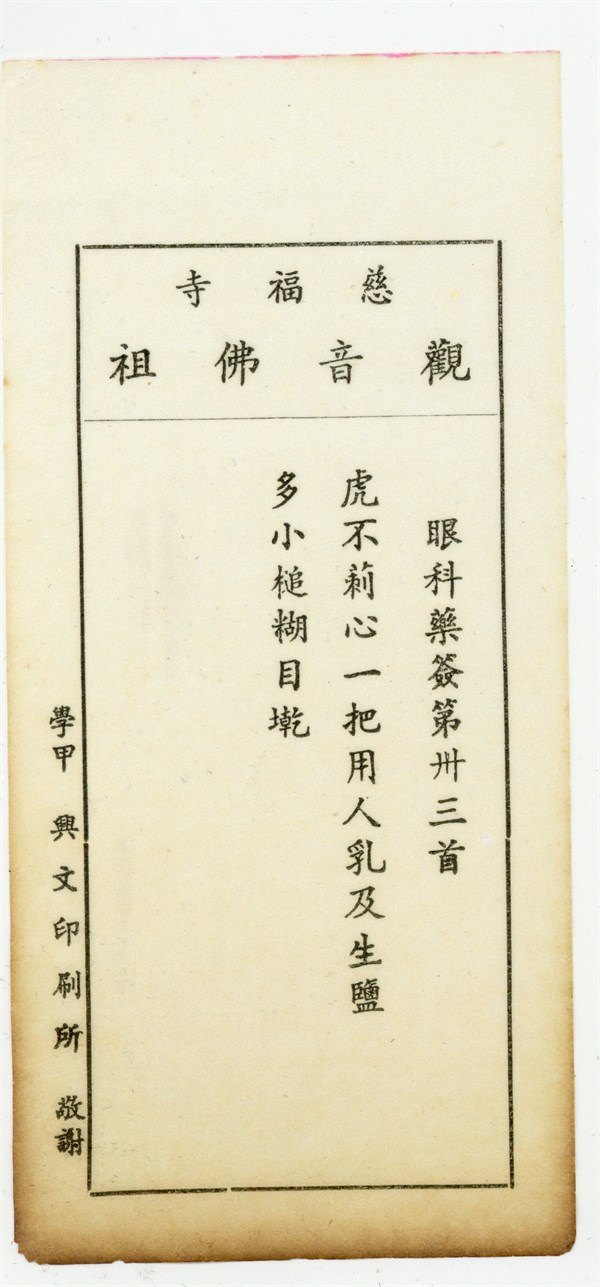 慈福寺
觀音佛祖
眼科藥簽第卅三首
虎不莿心一把用人乳及生鹽
多小槌糊目墘
學甲 興文印刷所 敬謝